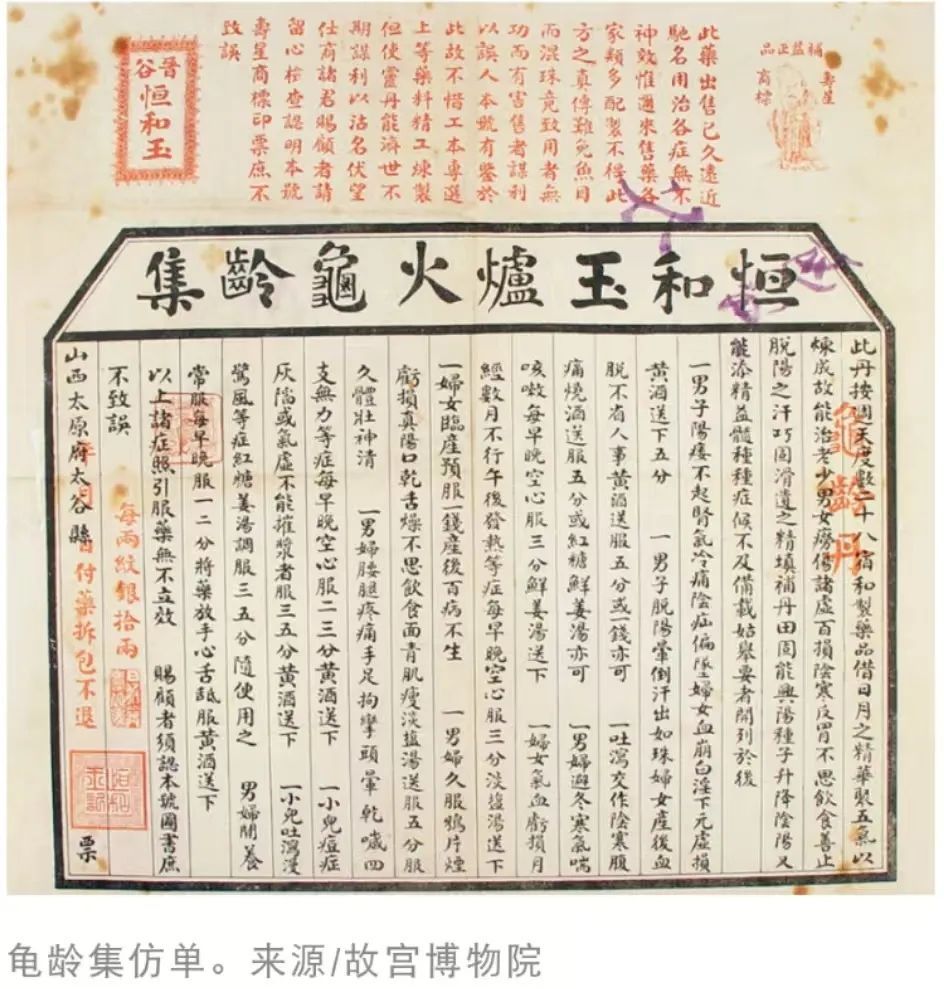 補益正品
壽星
商標
此藥出售已久遠近
馳名用治各症無不
神效惟邇來售藥各
家類多配製不得此
方之真傳難免魚目
而混珠竟致用者無
功而有害售者謀利
以誤人本號有鑒於
此故不惜工本專選
上等藥料精工煉製
但使靈丹能濟世不
期謀利以沽名伏望
仕商諸君賜顧者請
留心檢查認明本號
壽星商標印票庶不
致誤
晉谷
恒和玉
恒和玉爐火龜齡集
此丹按週天度數二十八宿和製藥品借日月之精華聚五氣以
煉成故能治老少男女癆傷諸虛百損陰寒反胃不思飲食善止
脫陽之汗巧固滑遺之精填補丹田固能興陽種子升降陰陽又
能添精益髓種種症候不及備載姑舉要者開列於後
龜齡丹
一男子陽痿不起腎氣冷痛陰疝偏墜婦女血崩白淫下元虛損
黃酒送下五分 一男子脫陽暈倒汗出如珠婦女產後血
脫不省人事黃酒送服五分或一錢亦可 一吐瀉交作陰寒腹
痛燒酒送服五分或紅糖鮮姜湯亦可 一男婦遇冬寒氣喘
咳嗽每早晚空心服三分鮮姜湯送下 一婦女氣血虧損月
經數月不行午後發熱等症每早晚空心服三分淡鹽湯送下
一婦女臨產預服一錢產後百病不生 一男婦久服鴉片煙
虧損真陽口乾舌燥不思飲食面青肌瘦淡鹽湯送服五分服
久體壯神清 一男婦腰腿疼痛手足拘攣頭暈乾嘔四
支無力等症每早晚空心服二三分黃酒送下 一小兒痘症
灰陷或氣虛不能摧漿者服三五分黃酒送下 一小兒吐瀉漫
驚風等症紅糖姜湯調服三五分隨使用之 男婦閒養
常服每早晚服一二分將藥放手心舌舐服黃酒送下
以上諸症照引服藥無不立效 賜顧者須認本號圖書庶
不致誤
每兩紋銀拾兩
年月日付藥拆包不退
山西太原府太谷縣
恒和玉記
票
龟龄集仿单。来源/故宫博物院